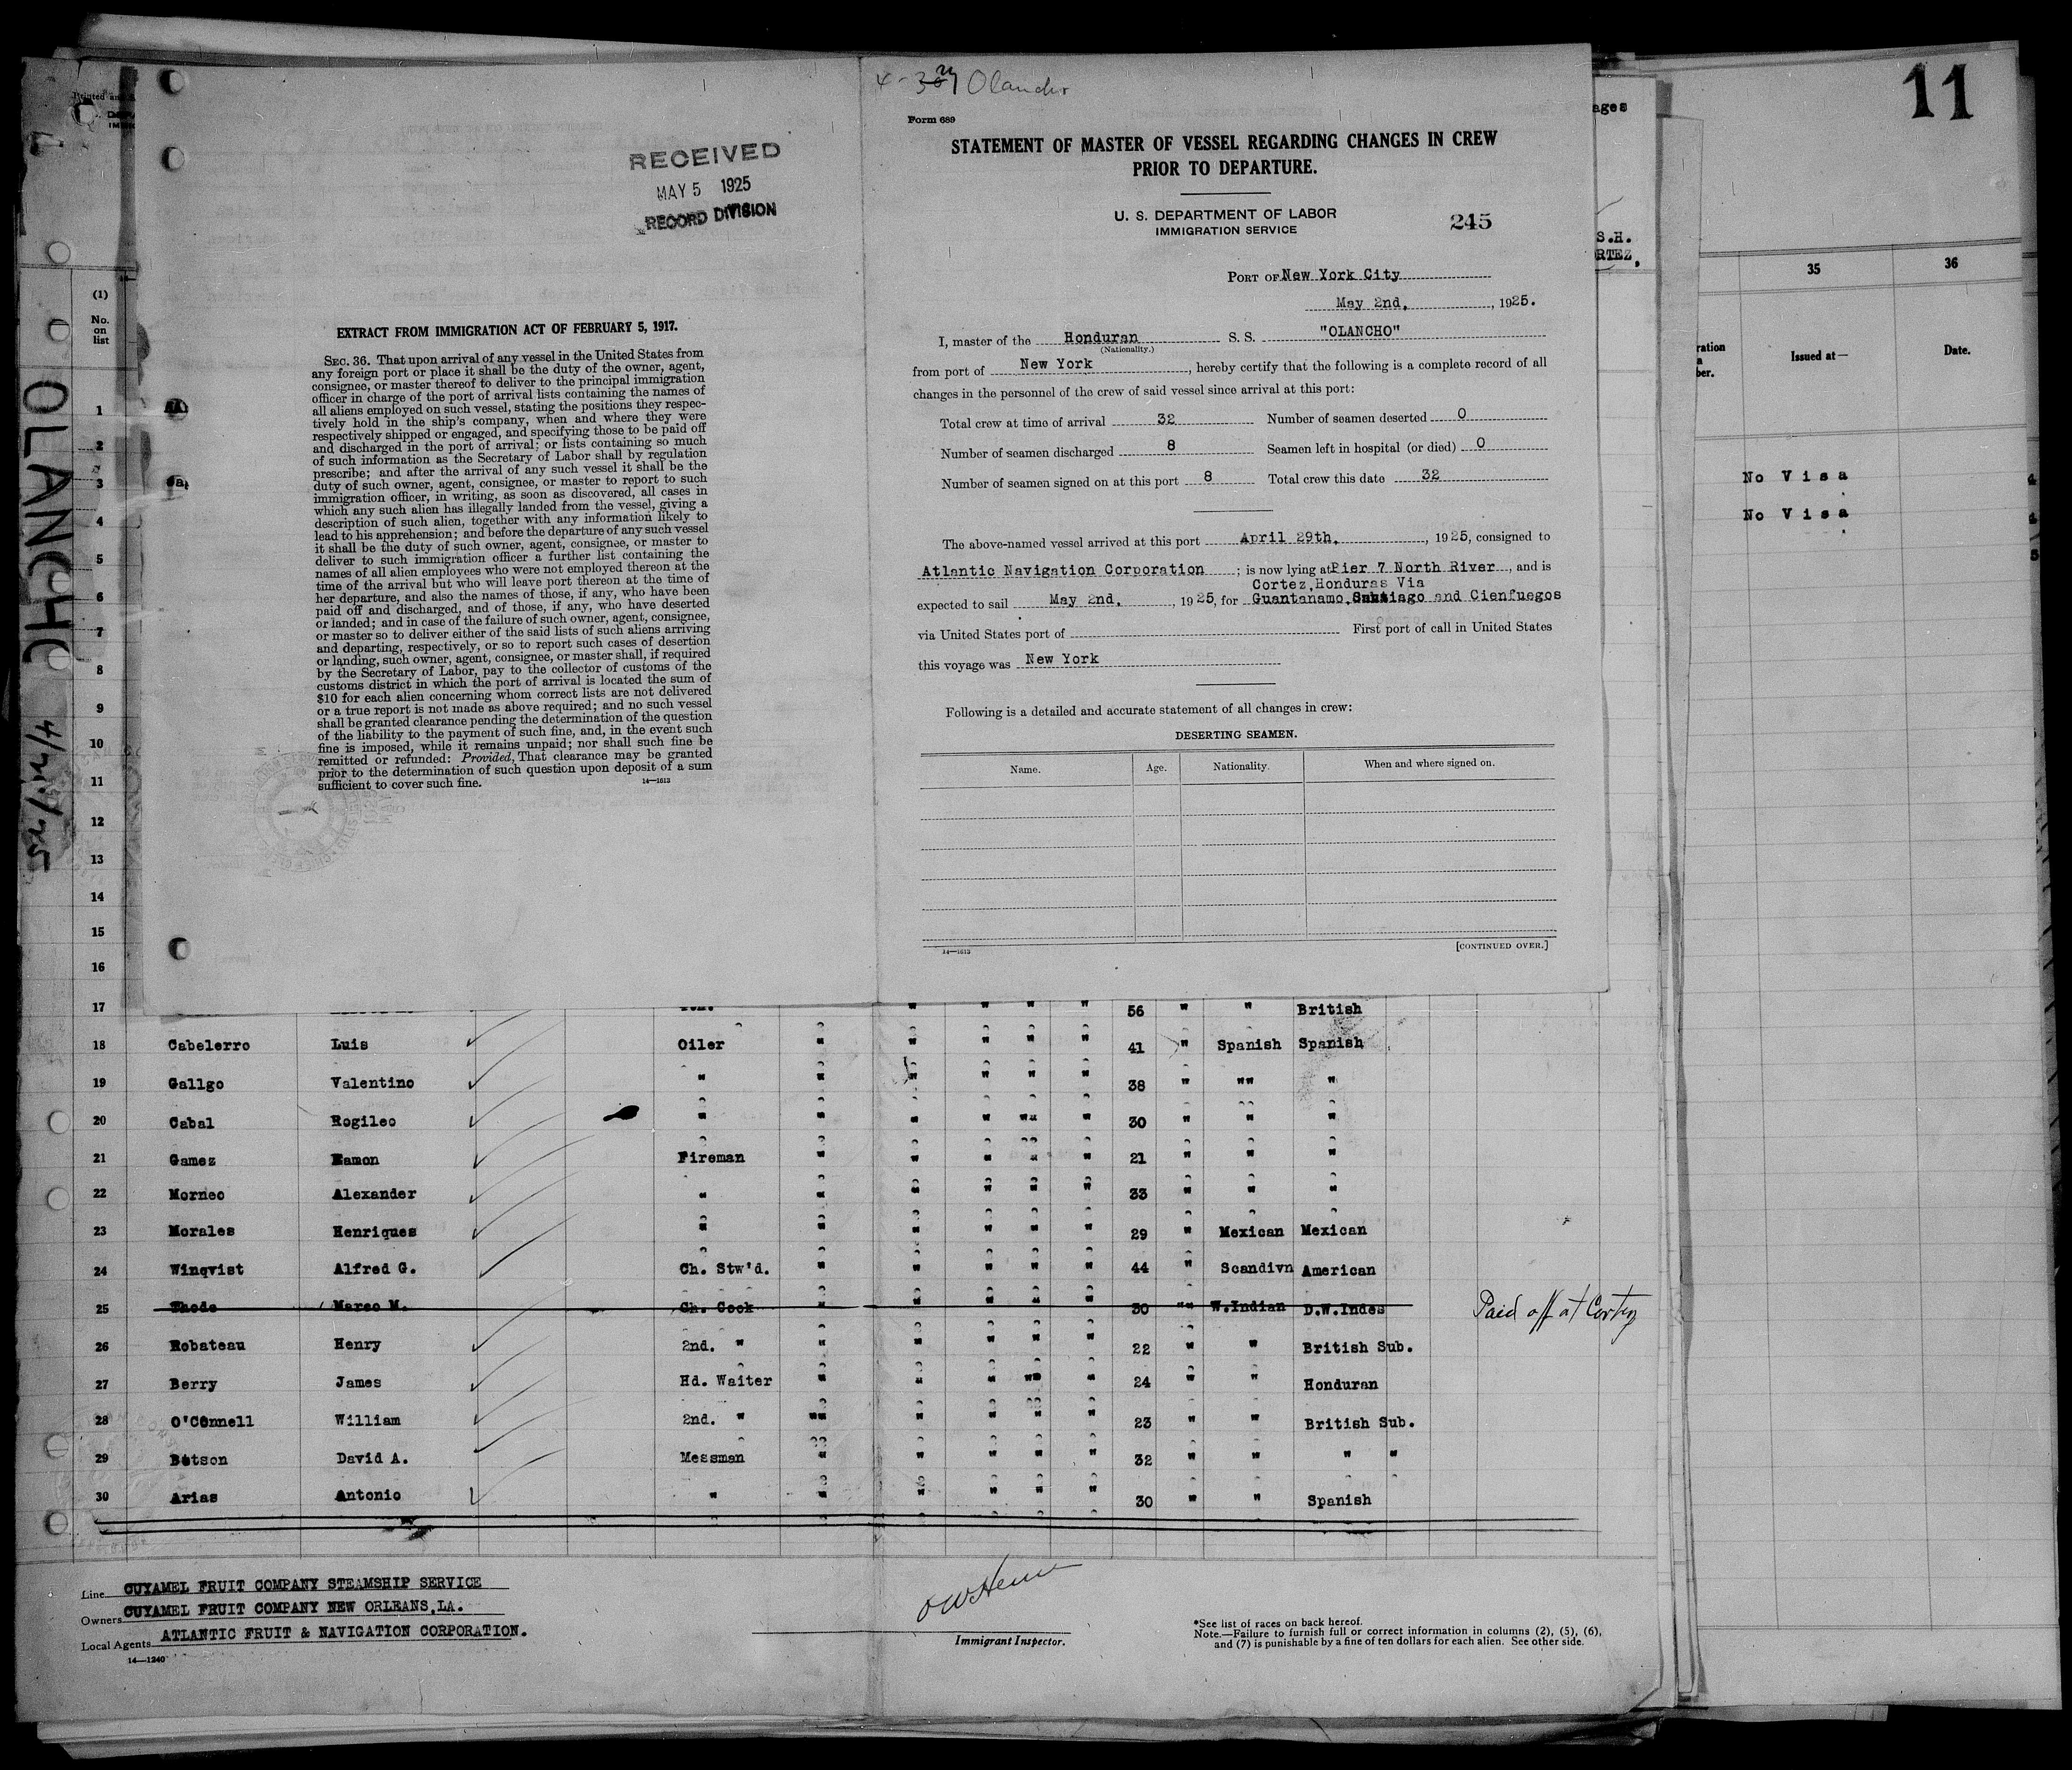 4-329 Olancho
RECEIVED
MAY 5 1925
RECORD DIVISION
EXTRACT FROM IMMIGRATION ACT OF FEBRUARY 5, 1917.
SEC. 36. That upon arrival of any vessel in the United States from
any foreign port or place it shall be the duty of the owner, agent,
consignee, or master thereof to deliver to the principal immigration
officer in charge of the port of arrival lists containing the names of
all aliens employed on such vessel, stating the positions they respec-
tively hold in the ship's company, when and where they were
respectively shipped or engaged, and specifying those to be paid off
and discharged in the port of arrival; or lists containing so much
of such information as the Secretary of Labor shall by regulation
prescribe; and after the arrival of any such vessel it shall be the
duty of such owner, agent, consignee, or master to report to such
immigration officer, in writing, as soon as discovered, all cases in
which any such alien has illegally landed from the vessel, giving a
description of such alien, together with any information likely to
lead to his apprehension; and before the departure of any such vessel
it shall be the duty of such owner, agent, consignee, or master to
deliver to such immigration officer a further list containing the
names of all alien employees who were not employed thereon at the
time of the arrival but who will leave port thereon at the time of
her departure, and also the names of those, if any, who have been
paid off and discharged, and of those, if any, who have deserted
or landed; and in case of the failure of such owner, agent, consignee,
or master so to deliver either of the said lists of such aliens arriving
and departing, respectively, or so to report such cases of desertion
or landing, such owner, agent, consignee, or master shall, if required
by the Secretary of Labor, pay to the collector of customs of the
customs district in which the port of arrival is located the sum of
$10 for each alien concerning whom correct lists are not delivered
or a true report is not made as above required; and no such vessel
shall be granted clearance pending the determination of the question
of the liability to the payment of such fine, and, in the event such
fine is imposed, while it remains unpaid; nor shall such fine be
remitted or refunded: Provided, That clearance may be granted
prior to the determination of such question upon deposit of a sum
sufficient to cover such fine.
14—1613
Form 689
STATEMENT OF MASTER OF VESSEL REGARDING CHANGES IN CREW
PRIOR TO DEPARTURE.
U. S. DEPARTMENT OF LABOR
IMMIGRATION SERVICE
245
PORT OF New York City
May 2nd, , 1925.
I, master of the Honduran S. S. "OLANCHO"
(Nationality.)
from port of New York , hereby certify that the following is a complete record of all
changes in the personnel of the crew of said vessel since arrival at this port:
Total crew at time of arrival 32 Number of seamen deserted 0
Number of seamen discharged 8 Seamen left in hospital (or died) 0
Number of seamen signed on at this port 8 Total crew this date 32
The above-named vessel arrived at this port April 29th, , 1925, consigned to
Atlantic Navigation Corporation ; is now lying at Pier 7 North River , and is
Cortez, Honduras Via
expected to sail May 2nd, , 1925, for Guantanamo, Santiago and Cienfuegos
via United States port of First port of call in United States
this voyage was New York
Following is a detailed and accurate statement of all changes in crew:
DESERTING SEAMEN.
Name. Age. Nationality. When and where signed on.
14—1613 [CONTINUED OVER.]
11
ages
S.H.
RTEZ,
35 36
Issued at— Date.
No Visa
No Visa
OLANCHO 4/29/25
(1)
No.
on
list
1
2
3
4
5
6
7
8
9
10
11
12
13
14
15
16
17 " " " " 56 " " British
18 Cabelerro Luis Oiler " " " " " 41 " Spanish Spanish
19 Gallgo Valentino " " " " " " 38 " "" "
20 Cabal Rogileo " " " " "" " 30 " " "
21 Gamez Ramon Fireman " " " " " 21 " " "
22 Morneo Alexander " " " " " " 33 " " "
23 Morales Henriques " " " " " " 29 " Mexican Mexican
24 Winqvist Alfred G. Ch. Stw'd. " " " " " 44 " Scandivn American
25 Thode Marco M. Ch. Cook " " " " " 30 "" W.Indian D.W.Indes Paid off at Cortez
26 Robateau Henry 2nd. " " " " " " 22 " " British Sub.
27 Berry James Hd. Waiter " " " "" " 24 " " Honduran
28 O'Connell William 2nd. " "" " " " " 23 " " British Sub.
29 Batson David A. Messman " " " " " 32 " " " "
30 Arias Antonio " " " " " " 30 " " Spanish
Line CUYAMEL FRUIT COMPANY STEAMSHIP SERVICE
Owners CUYAMEL FRUIT COMPANY NEW ORLEANS, LA.
Local Agents ATLANTIC FRUIT & NAVIGATION CORPORATION.
14—1240
Immigrant Inspector.
*See list of races on back hereof.
Note.—Failure to furnish full or correct information in columns (2), (5), (6),
and (7) is punishable by a fine of ten dollars for each alien. See other side.